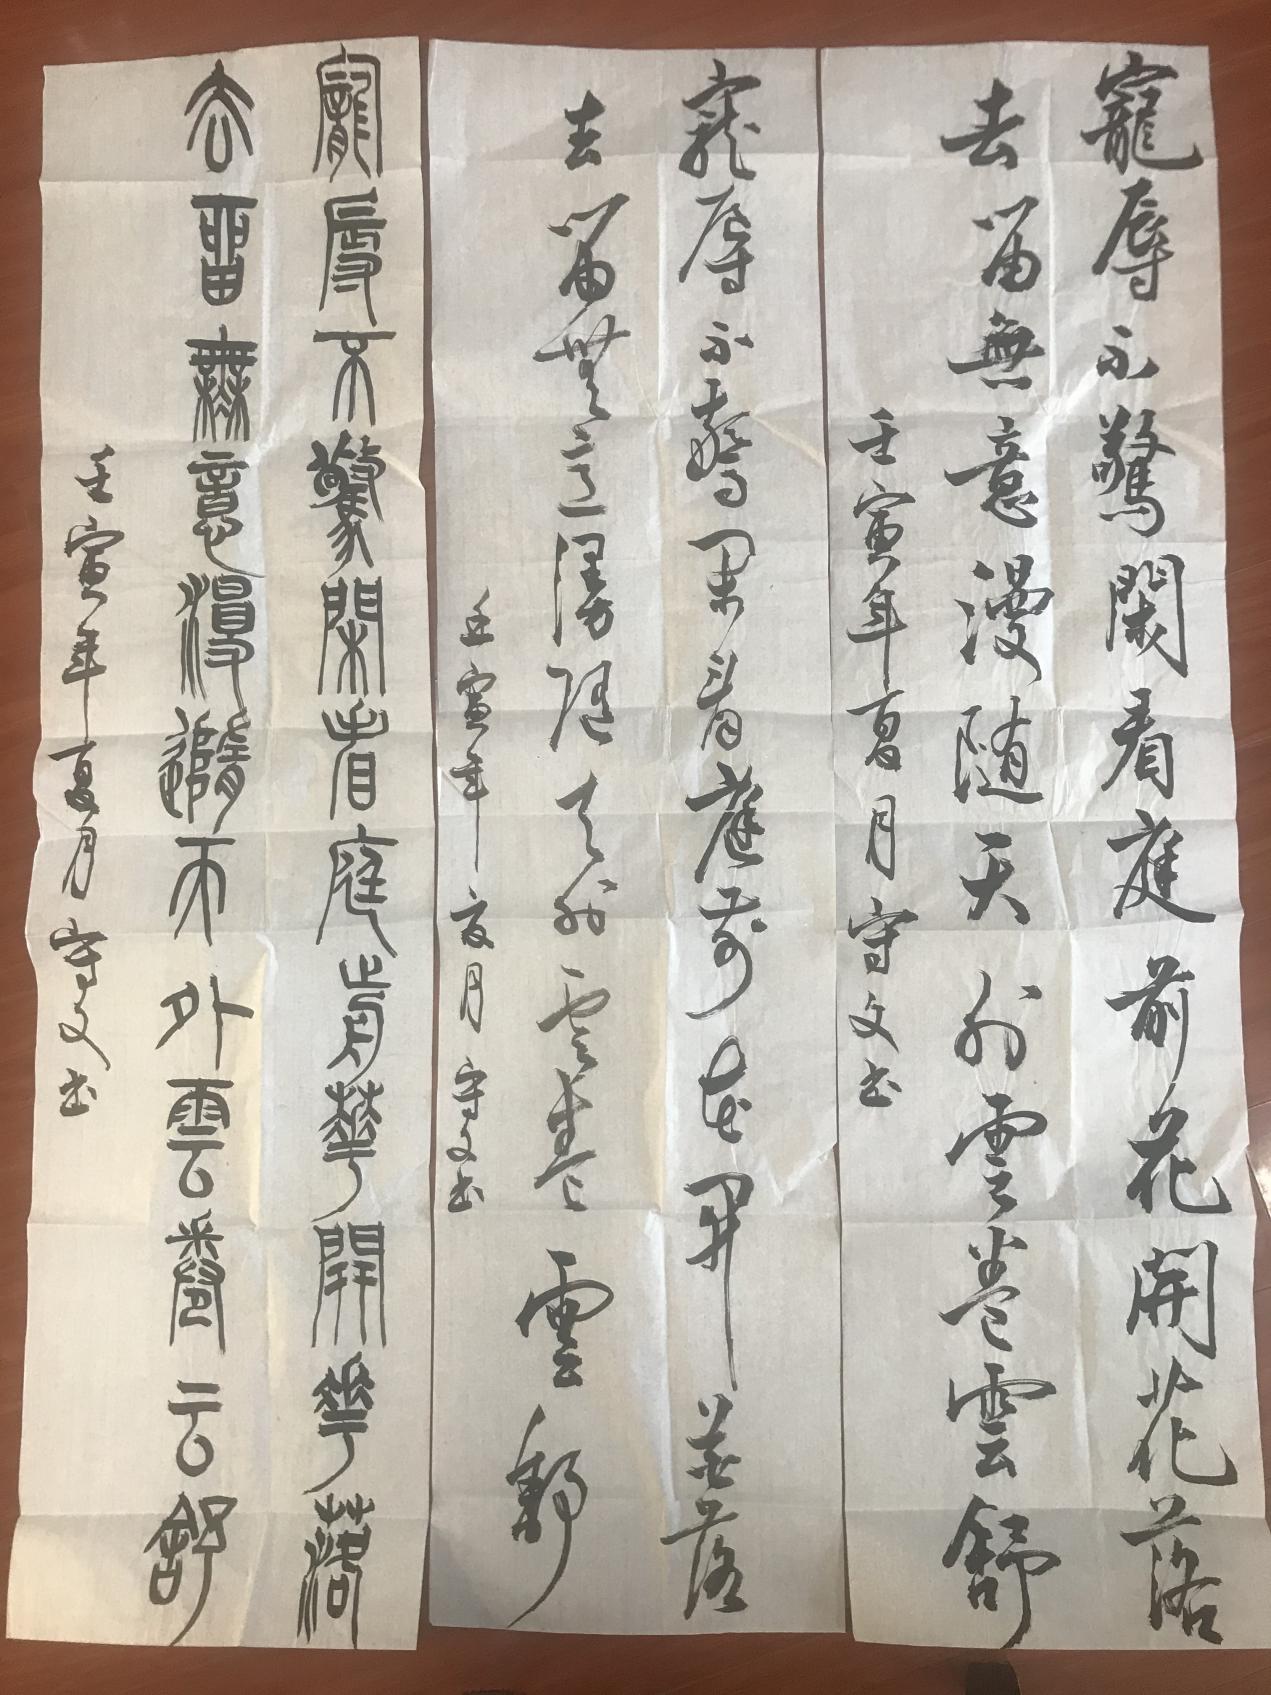 寵辱不驚閑看庭前花開花落
去留無意漫随天外雲卷雲舒
壬寅年夏月守文书
寵辱不驚閑看庭前花開花落
去留無意漫随天外雲卷雲舒
壬寅年夏月守文书
寵辱不驚閑看庭前華開華落
去留無意漫隨天外雲卷云舒
壬寅年夏月守文书